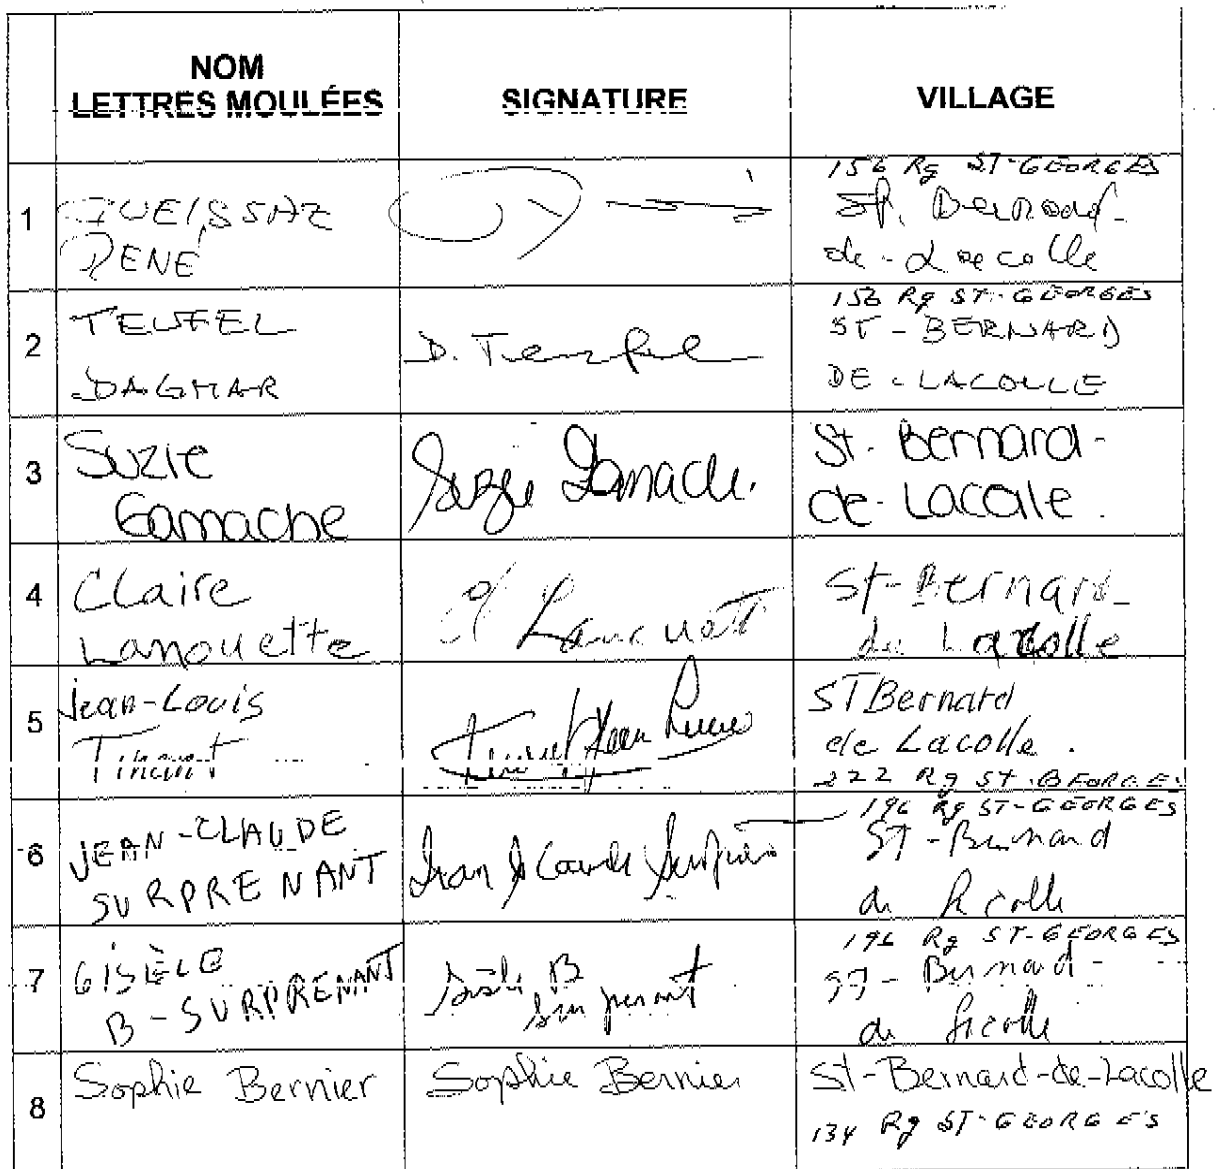 NOM
LETTRES MOULÉES
SIGNATURE
VILLAGE
1
RENÉ
156 Rg ST-GEORGES
St. Bernard-
de-Lacolle
2
TEUFEL
DAGMAR
D. Teufel
156 Rg ST-GEORGES
ST-BERNARD
DE-LACOLLE
3
Suzie
Gamache
Suzie Gamache
St-Bernard-
de-Lacolle.
4
Claire
Lanouette
Lanouette
St-Bernard-
de Lacolle
5
Jean-Louis
ST Bernard
de Lacolle.
222 Rg ST-GEORGES
6
JEAN-CLAUDE
SURPRENANT
Jean Claude Surprenant
196 Rg ST-GEORGES
ST-Bernard
de Lacolle
7
GISÈLE
B-SURPRENANT
Gisèle B
Surprenant
196 Rg ST-GEORGES
ST-Bernard-
de Lacolle
8
Sophie Bernier
Sophie Bernier
St-Bernard-de-Lacolle
134 Rg ST-GEORGES